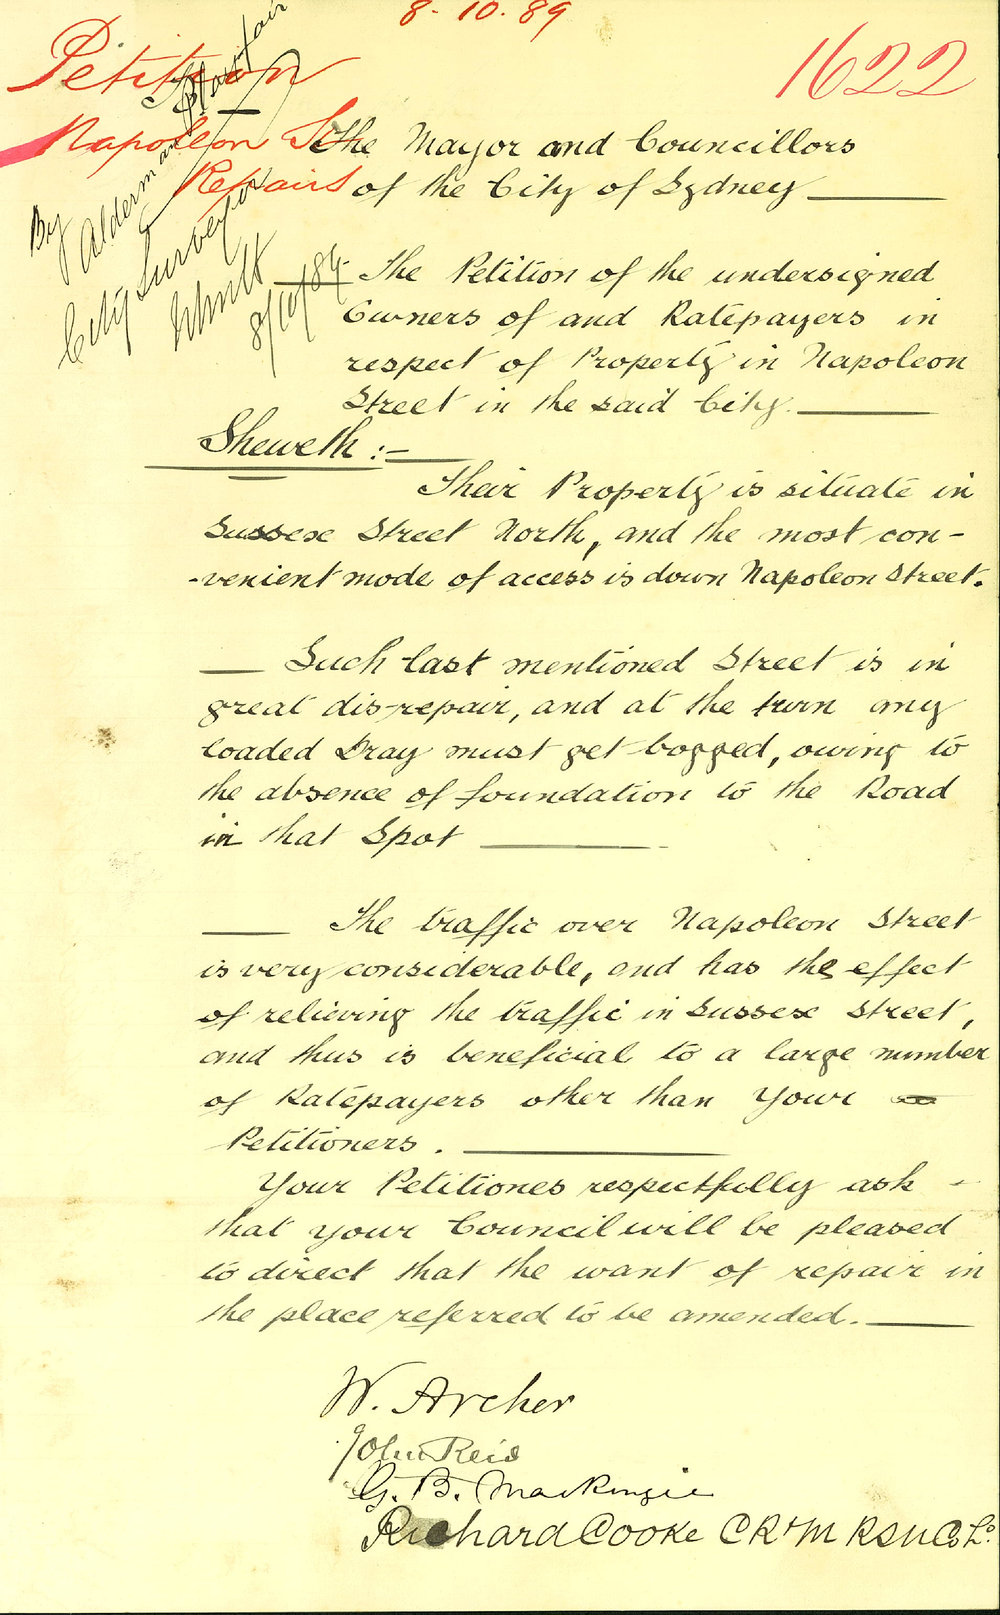 8. 10. 89
Petition
1622
Napoleon St
Repairs
By Alderman Playfair
City Surveyor
8/10/89
To the Mayor and Councillors
of the City of Sydney
The Petition of the undersigned
Owners of and Ratepayers in
respect of Property in Napoleon
Street in the said City.
Sheweth :-
Their Property is situate in
Sussex Street North, and the most con-
-venient mode of access is down Napoleon Street.
Such last mentioned Street is in
great dis-repair, and at the turn any
loaded Dray must get bogged, owing to
the absence of foundation to the Road
in that Spot
The traffic over Napoleon Street
is very considerable, and has the effect
of relieving the traffic in Sussex Street,
and thus is beneficial to a large number
of Ratepayers other than Your
Petitioners.
Your Petitiones respectfully ask
that your Council will be pleased
to direct that the want of repair in
the place referred to be amended.
W. Archer
John Reid
G. B. MacKenzie
Richard Cooke C R & M R S N Co Ld.